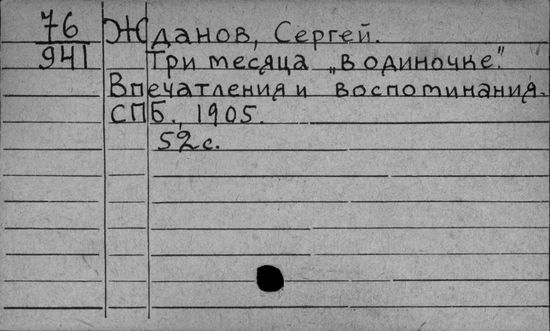 76
941
Жданов, Сергей.
Три месяца „в одиночке".
Впечатления и воспоминания.
СПБ., 1905.
52 с.